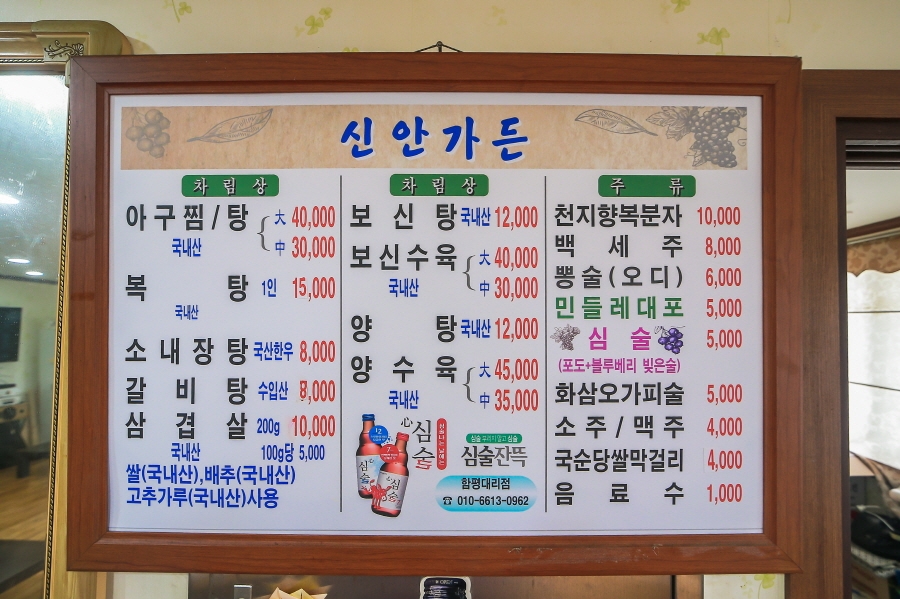 신안가든
차림상
아구찜/탕 大 40,000
국내산 中 30,000
복 탕 1인 15,000
국내산
소내장탕 국산한우 8,000
갈비탕 수입산 8,000
삼겹살 200g 10,000
국내산 100g당 5,000
쌀(국내산),배추(국내산)
고추가루(국내산)사용
차림상
보신탕 국내산 12,000
보신수육 大 40,000
국내산 中 30,000
양 탕 국내산 12,000
양수육 大 45,000
국내산 中 35,000
心 심술
12
심술
7
심술
심술 부리지 말고 심술
심술잔뜩
함평대리점
☎ 010-6613-0962
주 류
천지향복분자 10,000
백세주 8,000
뽕술(오디) 6,000
민들레대포 5,000
심술 5,000
(포도+블루베리 빚은술)
화삼오가피술 5,000
소주/맥주 4,000
국순당쌀막걸리 4,000
음료수 1,000